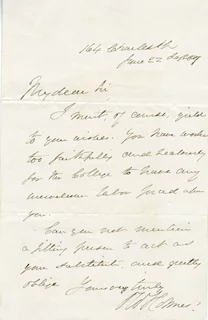 164 Charles St.
June 22
My dear Sir
I must, of course, yield
to your wishes. You have worked
too faithfully and zealously
for the College to have any
labor forced upon
you.
Can you not mention
a fitting person to act as
your substitute, and greatly
oblige Yours very truly
O W Holmes.